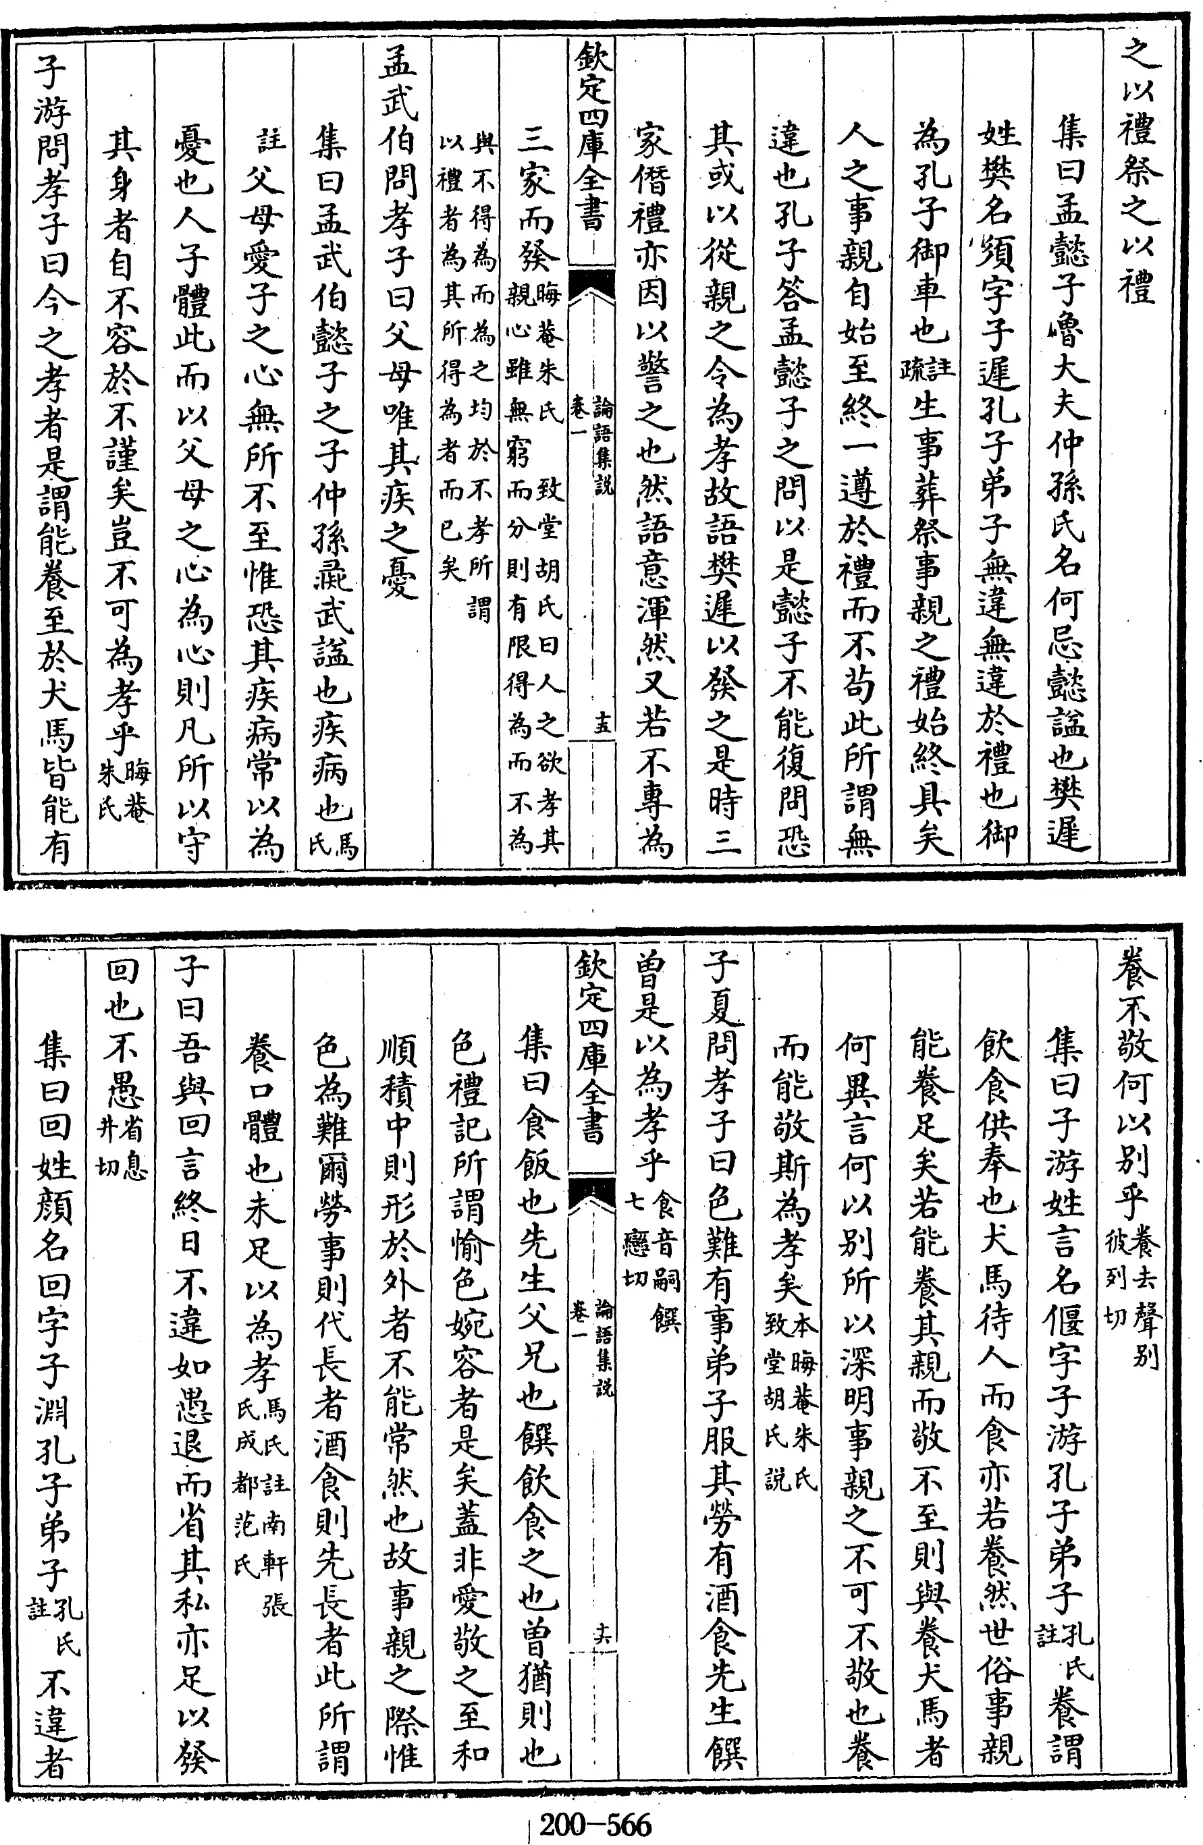 之以禮祭之以禮
集曰孟懿子魯大夫仲孫氏名何忌懿諡也樊遲
姓樊名須字子遲孔子弟子無違無違於禮也御
為孔子御車也註疏生事葬祭事親之禮始終具矣
人之事親自始至終一遵於禮而不茍此所謂無
違也孔子答孟懿子之問以是懿子不能復問恐
其或以從親之令為孝故語樊遲以發之是時三
家僭禮亦因以警之也然語意渾然又若不專為
欽定四庫全書
論語集説
卷一
十五
三家而發晦菴朱氏 致堂胡氏曰人之欲孝其
親心雖無窮而分則有限得為而不為
與不得為而為之均於不孝所謂
以禮者為其所得為者而已矣
孟武伯問孝子曰父母唯其疾之憂
集曰孟武伯懿子之子仲孫彘武諡也疾病也馬氏
註父母愛子之心無所不至惟恐其疾病常以為
憂也人子體此而以父母之心為心則凡所以守
其身者自不容於不謹矣豈不可為孝乎晦菴朱氏
子游問孝子曰今之孝者是謂能養至於犬馬皆能有
養不敬何以别乎養去聲别彼列切
集曰子游姓言名偃字子游孔子弟子孔氏註養謂
飲食供奉也犬馬待人而食亦若養然世俗事親
能養足矣若能養其親而敬不至則與養犬馬者
何異言何以别所以深明事親之不可不敬也養
而能敬斯為孝矣本晦菴朱氏致堂胡氏説
子夏問孝子曰色難有事弟子服其勞有酒食先生饌
曾是以為孝乎食音嗣饌七戀切
欽定四庫全書
論語集説
卷一
十六
集曰食飯也先生父兄也饌飲食之也曾猶則也
色禮記所謂愉色婉容者是矣蓋非愛敬之至和
順積中則形於外者不能常然也故事親之際惟
色為難爾勞事則代長者酒食則先長者此所謂
養口體也未足以為孝馬氏註南軒張氏成都范氏
子曰吾與回言終日不違如愚退而省其私亦足以發
回也不愚省息井切
集曰回姓顔名回字子淵孔子弟子孔氏註不違者
200-566